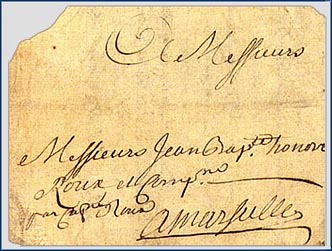 A Messieurs
Messieurs Jean Bapte honoré
Roux et Compno
par Cape Roux
A marseille